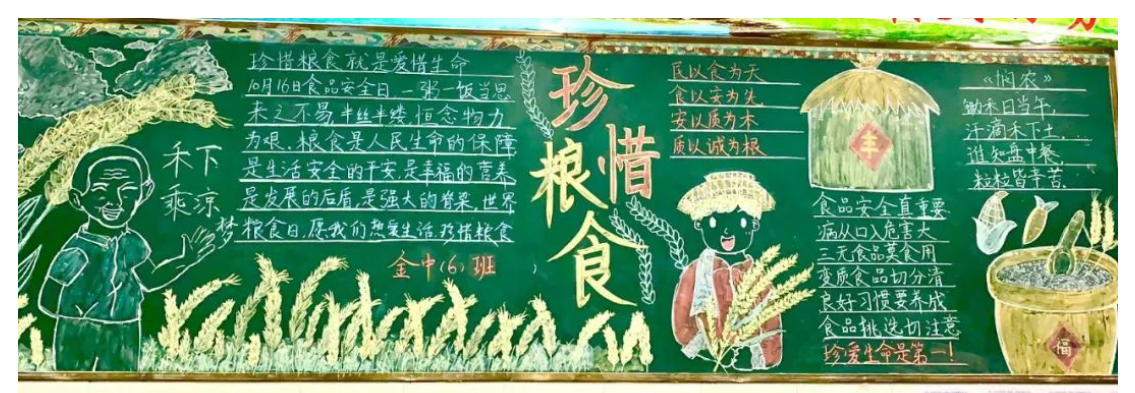 珍惜粮食就是爱惜生命
10月16日食品安全日,一粥一饭当思
来之不易,半丝半缕,恒念物力
为艰。粮食是人民生命的保障
是生活安全的平安,是幸福的营养
是发展的后盾,是强大的脊梁,世界
粮食日,愿我们热爱生活,珍惜粮食
金中(6)班
禾下
乘凉
梦
珍惜
粮食
民以食为天
食以安为先
安以质为本
质以诚为根
丰
食品安全真重要
病从口入危害大
三无食品莫食用
变质食品切分清
良好习惯要养成
食品挑选切注意
珍爱生命是第一!
《悯农》
锄禾日当午,
汗滴禾下土,
谁知盘中餐,
粒粒皆辛苦.
福